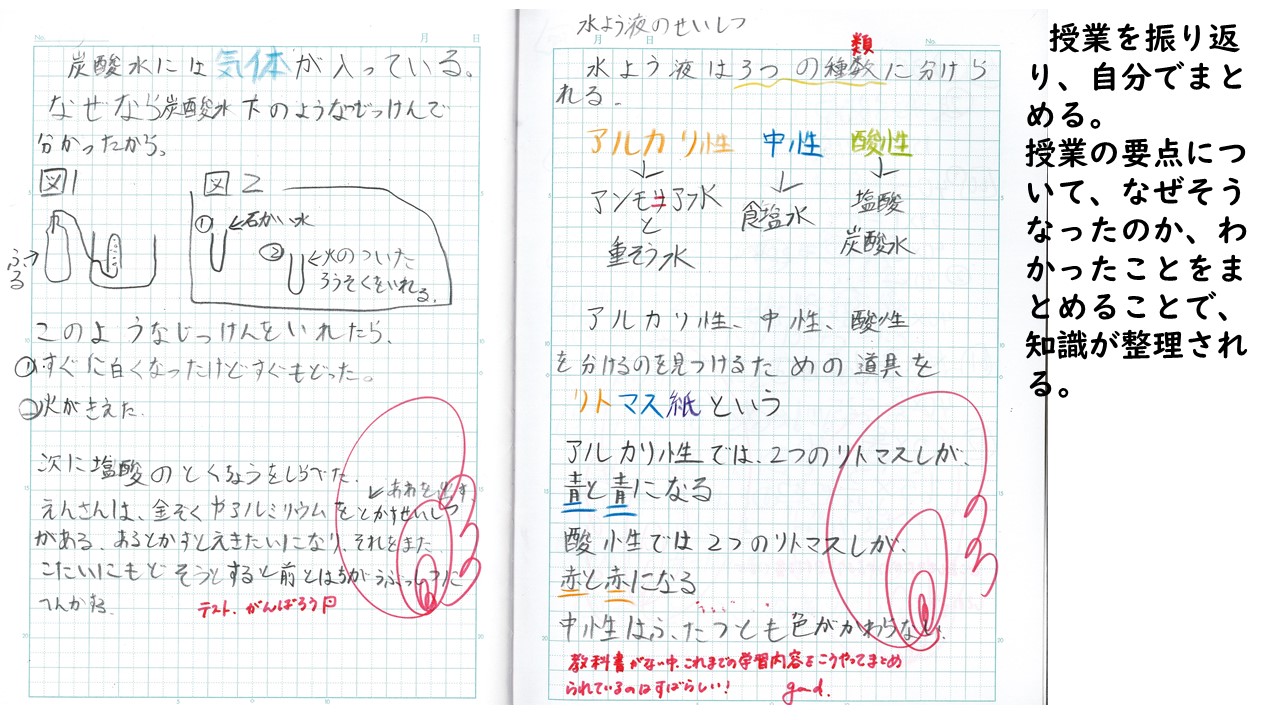 炭酸水には気体が入っている。
なぜなら炭酸水下のようなじっけんで
分かったから。
図1
図2
ふる→
① ←石かい水
② ←火のついた
ろうそくをいれる。
このようなじっけんをいれたら、
①すぐに白くなったけどすぐもどった。
②火がきえた.
次に塩酸のとくちょうをしらべた.
↙あわを出す.
えんさんは、金ぞくやアルミリウムをとかすせいしつ
がある. あるとかすとえきたいになり、それをまた
こたいにもどそうとすると前とはちがうぶっしつに
へんかする.
テスト. がんばろう
水よう液のせいしつ
月 日
No.
類
水よう液は3つの種数に分けら
れる.
アルカリ性 中性 酸性
アンモニア水 食塩水 塩酸
と
重そう水 炭酸水
アルカリ性、中性、酸性
を分けるのを見つけるための道具を
リトマス紙という
アルカリ性では、2つのリトマスしが、
青と青になる
酸性では2つのリトマスしが、
赤と赤になる
中性はふたつとも色がかわらない.
教科書がない中、これまでの学習内容をこうやってまとめ
られているのはすばらしい! good.
授業を振り返
り、自分でまと
める。
授業の要点につ
いて、なぜそう
なったのか、わ
かったことをま
とめることで、
知識が整理され
る。